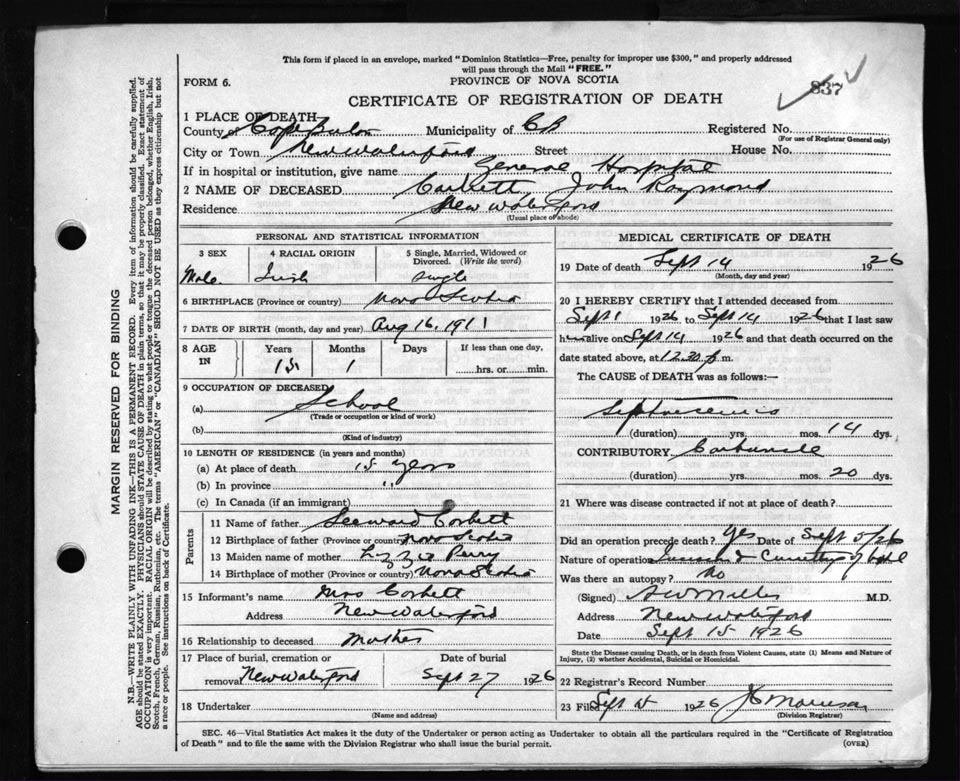 This form if placed in an envelope, marked "Dominion Statistics—Free, penalty for improper use $300," and properly addressed
will pass through the Mail "FREE."
837
FORM 6.
PROVINCE OF NOVA SCOTIA
CERTIFICATE OF REGISTRATION OF DEATH
1 PLACE OF DEATH—
County of Cape Breton Municipality of CB Registered No.
(For use of Registrar General only)
City or Town New Waterford Street House No.
If in hospital or institution, give name General Hospital
2 NAME OF DECEASED Corbett, John Raymond
Residence New Waterford
(Usual place of abode)
MARGIN RESERVED FOR BINDING
N.B.—WRITE PLAINLY WITH UNFADING INK—THIS IS A PERMANENT RECORD. Every item of information should be carefully supplied.
AGE should be stated EXACTLY. PHYSICIANS should STATE CAUSE OF DEATH in plain terms, so that it may be properly classified. Exact statement of
OCCUPATION is very important. RACIAL ORIGIN will be described by stating to what people or tongue the deceased person belonged, whether English, Irish,
Scotch, French, German, Russian, Ruthenian, etc. The terms "AMERICAN" or "CANADIAN" SHOULD NOT BE USED as they express citizenship but not
a race or people. See instructions on back of Certificate.
PERSONAL AND STATISTICAL INFORMATION
3 SEX 4 RACIAL ORIGIN 5 Single, Married, Widowed or
Divorced. (Write the word)
Male Irish Single
6 BIRTHPLACE (Province or country) Nova Scotia
7 DATE OF BIRTH (month, day and year) Aug 16, 1911
8 AGE IN Years Months Days If less than one day,
15 1 hrs. or min.
9 OCCUPATION OF DECEASED
(a) School
(Trade or occupation or kind of work)
(b)
(Kind of industry)
10 LENGTH OF RESIDENCE (in years and months)
(a) At place of death 15 years
(b) In province "
(c) In Canada (if an immigrant)
Parents
11 Name of father Corbett
12 Birthplace of father (Province or country) Nova Scotia
13 Maiden name of mother Lizzie Perry
14 Birthplace of mother (Province or country) Nova Scotia
15 Informant's name Mrs Corbett
Address New Waterford
16 Relationship to deceased Mother
17 Place of burial, cremation or Date of burial
removal New Waterford Sept 27 1926
18 Undertaker
(Name and address)
MEDICAL CERTIFICATE OF DEATH
19 Date of death Sept 14 1926
(Month, day and year)
20 I HEREBY CERTIFY that I attended deceased from
Sept 1 1926 to Sept 14 1926 that I last saw
him alive on Sept 14 1926 and that death occurred on the
date stated above, at 12.30 p.m.
The CAUSE of DEATH was as follows:—
Septicaemia
(duration) yrs. mos. 14 dys.
CONTRIBUTORY Carbuncle
(duration) yrs. mos. 20 dys.
21 Where was disease contracted if not at place of death?
Did an operation precede death? Yes Date of Sept 5/26
Nature of operation
Was there an autopsy? No
(Signed) M.D.
Address New Waterford
Date Sept 15 1926
State the Disease causing Death, or in death from Violent Causes, state (1) Means and Nature of
Injury, (2) whether Accidental, Suicidal or Homicidal.
22 Registrar's Record Number
23 Filed Sept 1926
(Division Registrar)
SEC. 46—Vital Statistics Act makes it the duty of the Undertaker or person acting as Undertaker to obtain all the particulars required in the "Certificate of Registration
of Death" and to file the same with the Division Registrar who shall issue the burial permit.
(OVER)